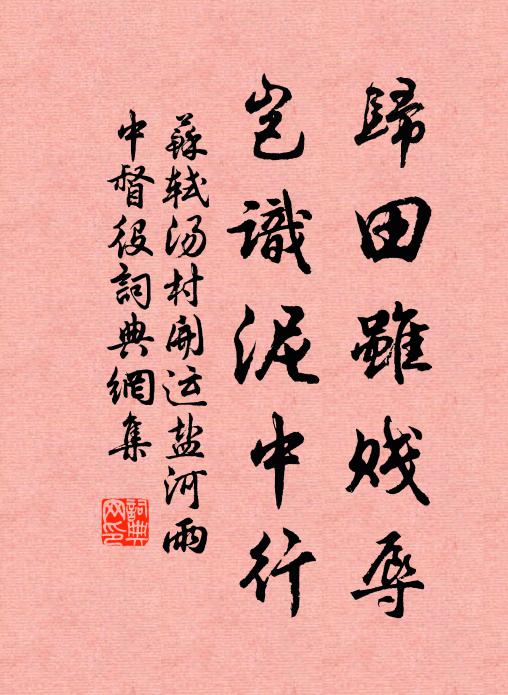 歸田雖賤辱
豈識泥中行
蘇軾湯村開运盐河雨
中督役詞典網集
詞典网印